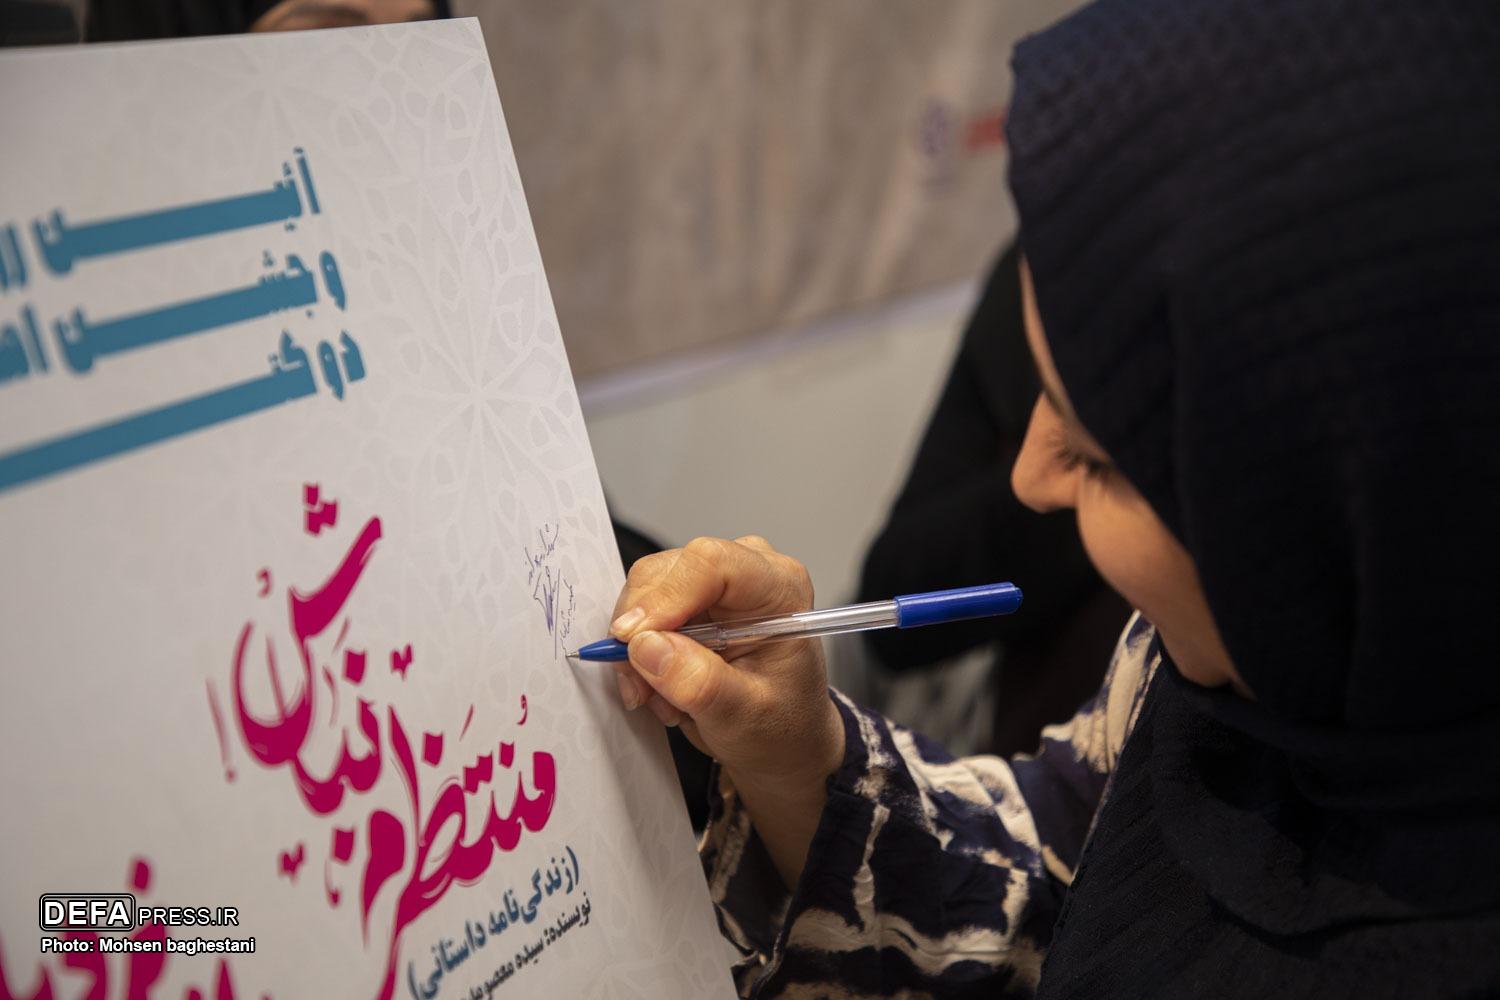 آئیـــن رو
و جشـــن امض
دو کتـــ
مُنتَظِرَم
نَباشُ!
(زندگی‌نامه داستانی)
نویسنده: سیده معصومه
DEFAPRESS.IR
Photo: Mohsen baghestani